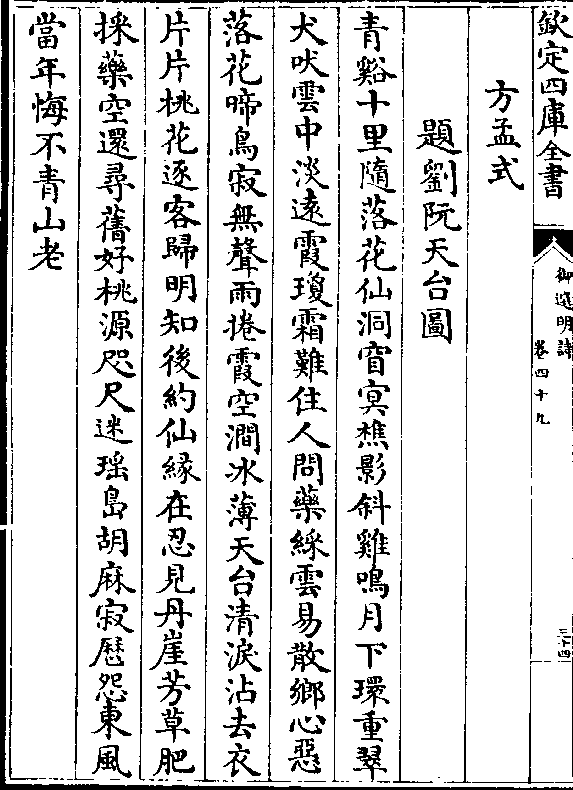 欽定四庫全書
御選明詩
卷四十九
三十四
方孟式
題劉阮天台圖
青谿十里隨落花仙洞窅冥樵影斜雞鳴月下環重翠
犬吠雲中淡遠霞瓊霜難住人問藥綵雲易散鄉心惡
落花啼鳥寂無聲雨捲霞空澗冰薄天台清淚沾去衣
片片桃花逐客歸明知後約仙緣在忍見丹崖芳草肥
採藥空還尋舊好桃源咫尺迷瑶島胡麻寂厯怨東風
當年悔不青山老